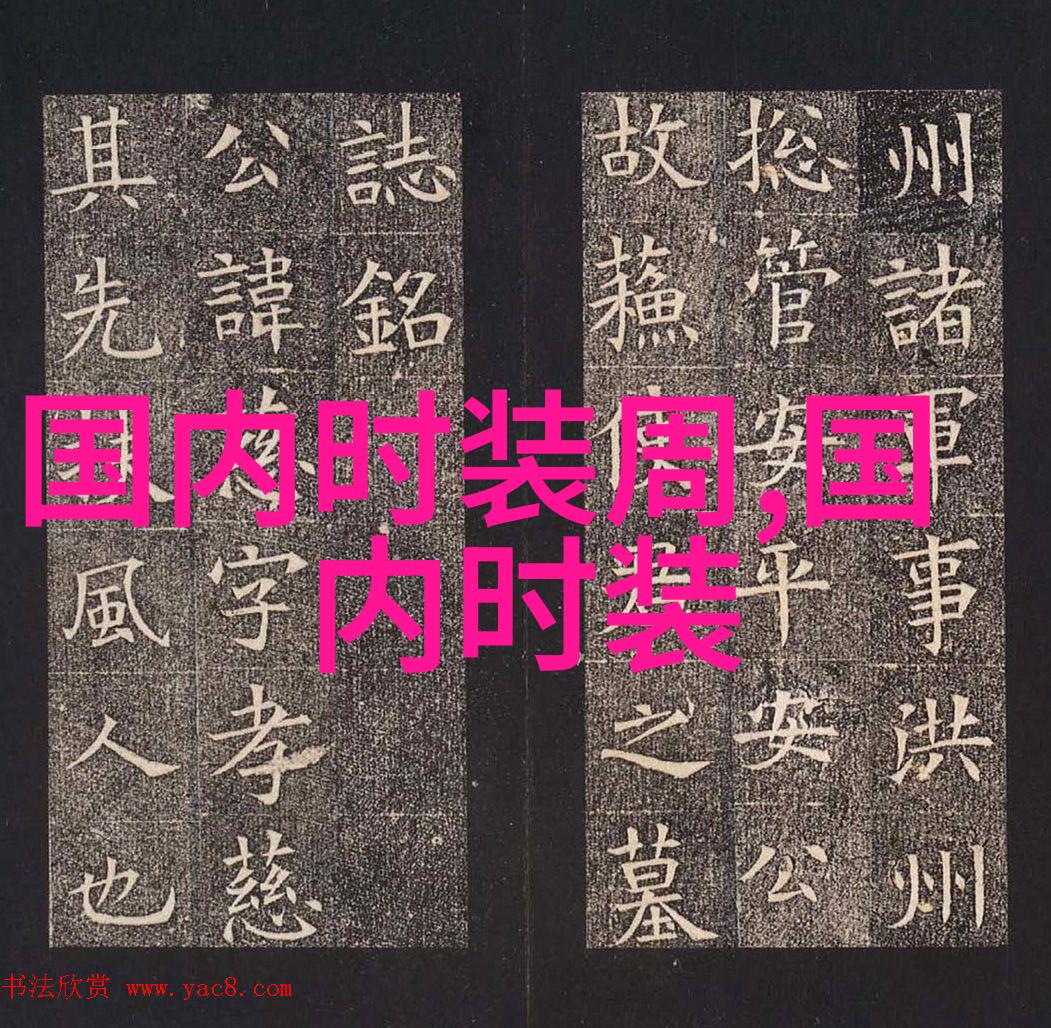 州諸軍事洪州
揔管安平安公
故蘓使君之墓
誌銘
公諱慈字孝慈
其先扶風人也
国内时装周,国
内时装
书法欣赏 www.yac8.com